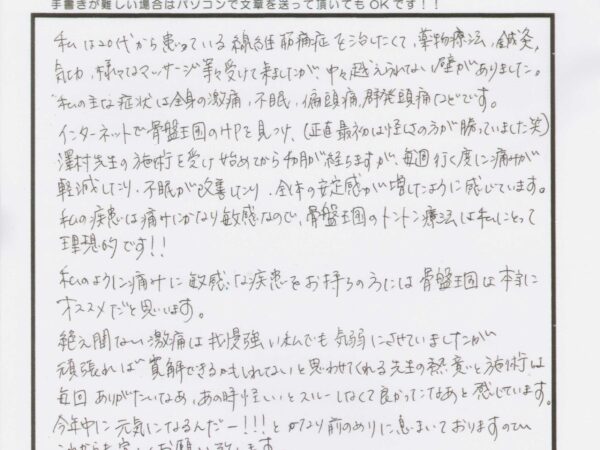 手書きが難しい場合はパソコンで文章を送って頂いてもOKです！！
私は20代から患っている線維筋痛症を治したくて、薬物療法、鍼灸、
気功、様々なマッサージ等々受けて来ましたが、中々越えられない壁がありました。
私の主な症状は全身の激痛、不眠、偏頭痛、群発頭痛などです。
インターネットで骨盤王国のHPを見つけ、(正直最初は怪しさの方が勝っていました笑)
澤村先生の施術を受け始めてから初月が経ちますが、毎週行く度に痛みが
軽減したり、不眠が改善したり、全体の安定感が増したように感じています。
私の疾患は痛みにかなり敏感なので、骨盤王国のトントン療法は私にとって
理想的です！！
私のように痛みに敏感な疾患をお持ちの方には骨盤王国は本当に
オススメだと思います。
絶え間ない激痛は我慢強い私でも気弱にさせていましたが
頑張れば寛解できるかもしれないと思わせてくれる先生の熱意と施術は
毎回ありがたいなあ、あの時怪しいとスルーしなくて良かったなあと感じています。
今年中に元気になるんだー！！！とかなり前のめりに息まいておりますので
これからも宜しくお願い致します